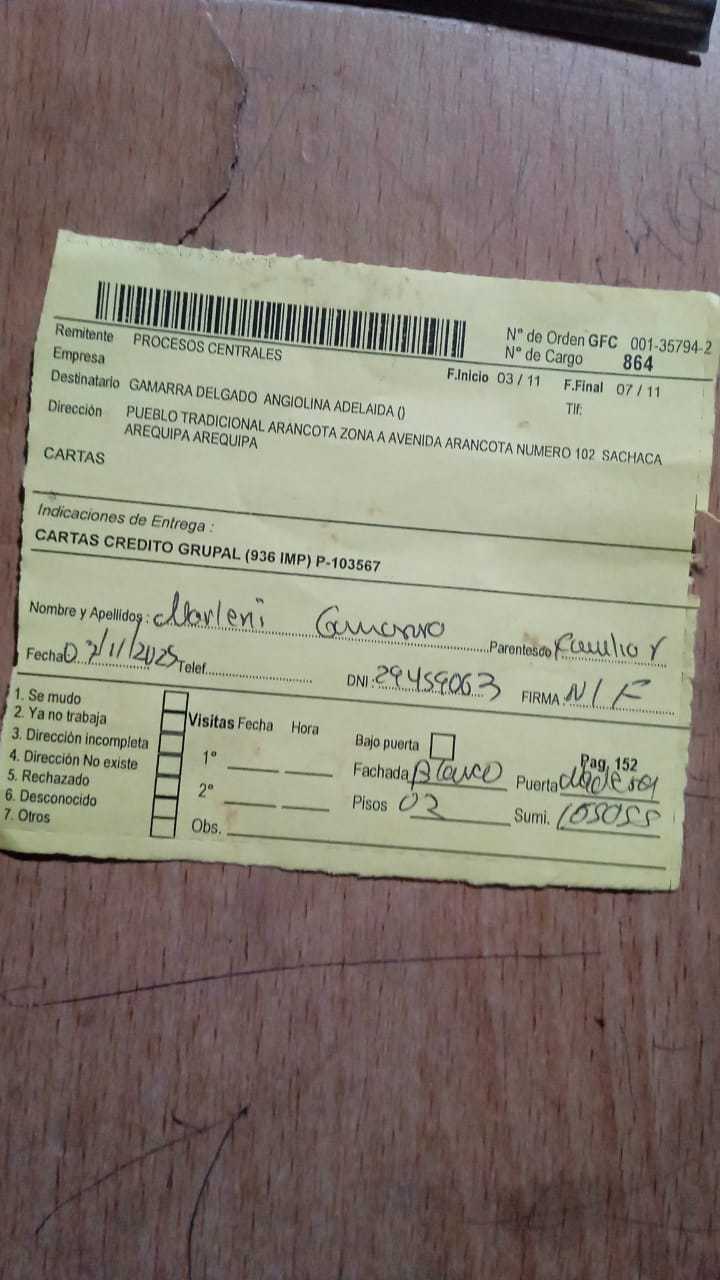 N° de Orden GFC 001-35794-2
Remitente PROCESOS CENTRALES N° de Cargo 864
Empresa F.Inicio 03 / 11 F.Final 07 / 11
Destinatario GAMARRA DELGADO ANGIOLINA ADELAIDA () Tlf:
Dirección PUEBLO TRADICIONAL ARANCOTA ZONA A AVENIDA ARANCOTA NUMERO 102 SACHACA
AREQUIPA AREQUIPA
CARTAS
Indicaciones de Entrega :
CARTAS CREDITO GRUPAL (936 IMP) P-103567
Nombre y Apellidos : Marleni Gamarra Parentesco Familiar
Fecha 07/11/2025 Telef. DNI: 29459063 FIRMA N/F
1. Se mudo
2. Ya no trabaja Visitas Fecha Hora
3. Dirección incompleta 1° Bajo puerta Pag. 152
4. Dirección No existe Fachada Blanco Puerta
5. Rechazado 2° Pisos 02 Sumi. 105055
6. Desconocido
7. Otros Obs.